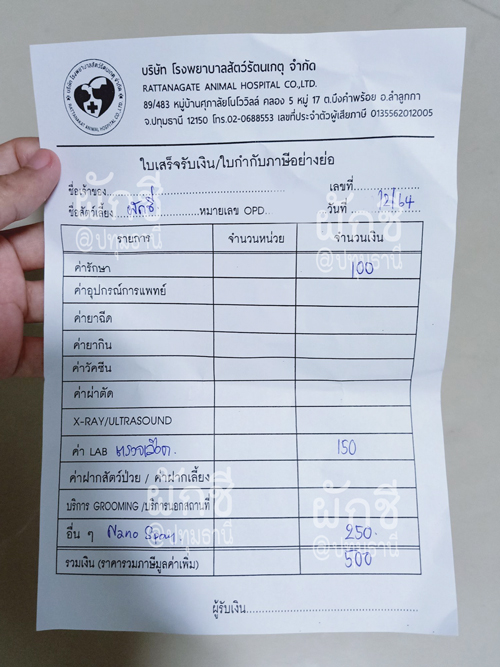 บริษัท โรงพยาบาลสัตว์รัตนเกตุ จำกัด
RATTANAGATE ANIMAL HOSPITAL CO.,LTD.
89/483 หมู่บ้านศุภาลัยโนโววิลล์ คลอง 5 หมู่ 17 ต.บึงคำพร้อย อ.ลำลูกกา
จ.ปทุมธานี 12150 โทร.02-0688553 เลขที่ประจำตัวผู้เสียภาษี 0135562012005
ใบเสร็จรับเงิน/ใบกำกับภาษีอย่างย่อ
ชื่อเจ้าของ เลขที่
ชื่อสัตว์เลี้ยง ผักชี หมายเลข OPD. วันที่ 12/64
ผักชี
@ปทุมธานี
รายการ จำนวนหน่วย จำนวนเงิน
ค่ารักษา 100
ค่าอุปกรณ์การแพทย์
ค่ายาฉีด
ค่ายากิน
ค่าวัคซีน
ค่าผ่าตัด
X-RAY/ULTRASOUND
ค่า LAB ตรวจเลือด 150
ค่าฝากสัตว์ป่วย / ค่าฝากเลี้ยง
บริการ GROOMING /บริการนอกสถานที่
ผักชี
@ปทุมธานี
อื่น ๆ Nano 250.-
รวมเงิน (ราคารวมภาษีมูลค่าเพิ่ม) 500
ผู้รับเงิน